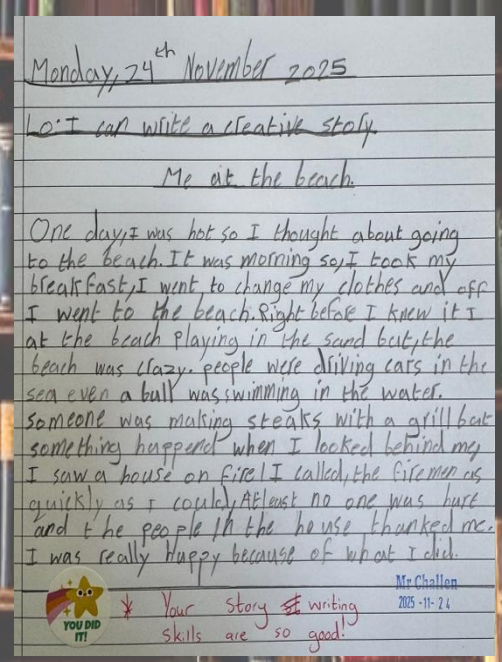 Monday, 24th November 2025
Lo: I can write a creative story.
Me at the beach.
One day, I was hot so I thought about going
to the beach. It was morning so, I took my
breakfast, I went to change my clothes and off
I went to the beach. Right before I knew it I
at the beach playing in the sand but, the
beach was crazy. people were driving cars in the
sea even a bull was swimming in the water.
someone was making steaks with a grill but
something happend when I looked behind me,
I saw a house on fire! I called, the firemen as
quickly as I could, Atleast no one was hurt
and the people in the house thanked me.
I was really happy because of what I did.
Mr Challen
2025 -11- 24
YOU DID
IT!
* Your story writing
skills are so good!